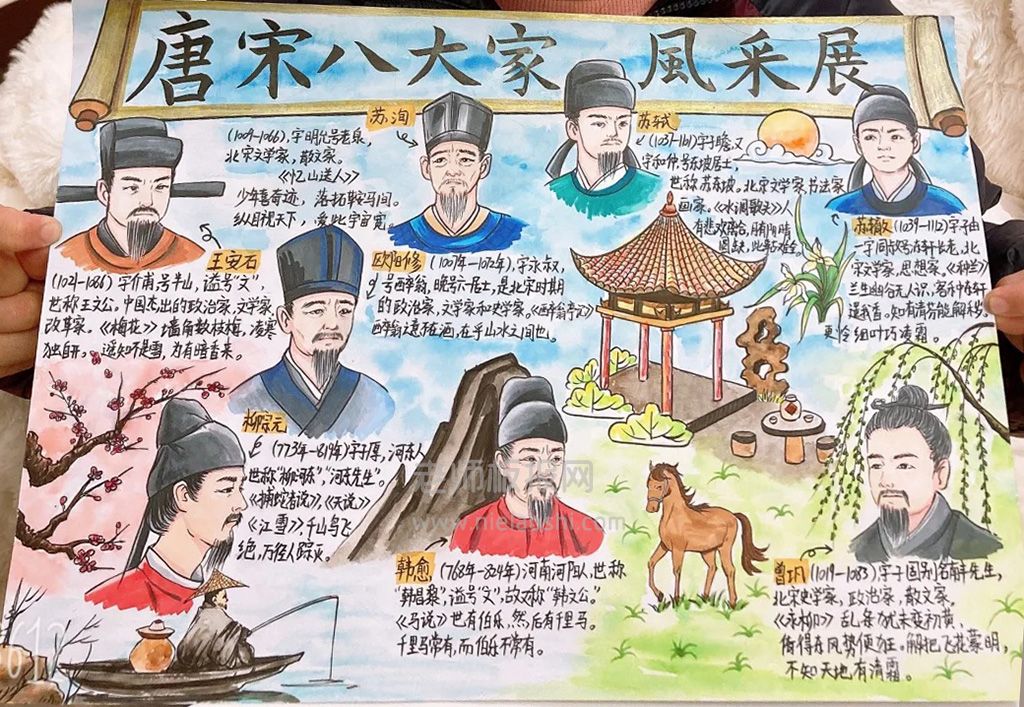 唐宋八大家 風采展
苏洵
(1009-1066),字明允号老泉,
北宋文学家,散文家。
《忆山送人》
少年喜奇迹,落拓鞍马间。
纵目视天下,爱此宇宙宽。
苏轼
(1037-1101)字子瞻,又
字和仲号东坡居士,
世称苏东坡。北宋文学家书法家
画家。《水调歌头》人
有悲欢离合,月有阴晴
圆缺,此事古难全。
苏辙
(1039-1112)字子由
一字同叔号东轩长老,北
宋文学家,思想家,《种兰》
兰生幽谷无人识,客种东轩
遗我香。知有清芬能解秽,
更怜细叶巧凌霜。
王安石
(1021-1086)字介甫,号半山,谥号"文",
世称王文公。中国杰出的政治家,文学家
改革家。《梅花》墙角数枝梅,凌寒
独自开。遥知不是雪,为有暗香来。
欧阳修
(1007年-1072年),字永叔,
号醉翁,晚号六一居士,是北宋时期
的政治家,文学家和史学家。《醉翁亭记》
醉翁之意不在酒,在乎山水之间也。
柳宗元
(773年-819年)字子厚,河东人
世称"柳河东""河东先生"
《捕蛇者说》《天说》
《江雪》千山鸟飞
绝,万径人踪灭。
韩愈
(768年-824年)河南河阳人,世称
"韩昌黎",谥号"文",故又称"韩文公。"
《马说》世有伯乐,然后有千里马。
千里马常有,而伯乐不常有。
曾巩
(1019-1083),字子固别名南丰先生,
北宋史学家,政治家,散文家。
《咏柳》乱条犹未变初黄,
倚得东风势便狂。解把飞花蒙日月,
不知天地有清霜。
老师板报网
www.nielaoshi.com